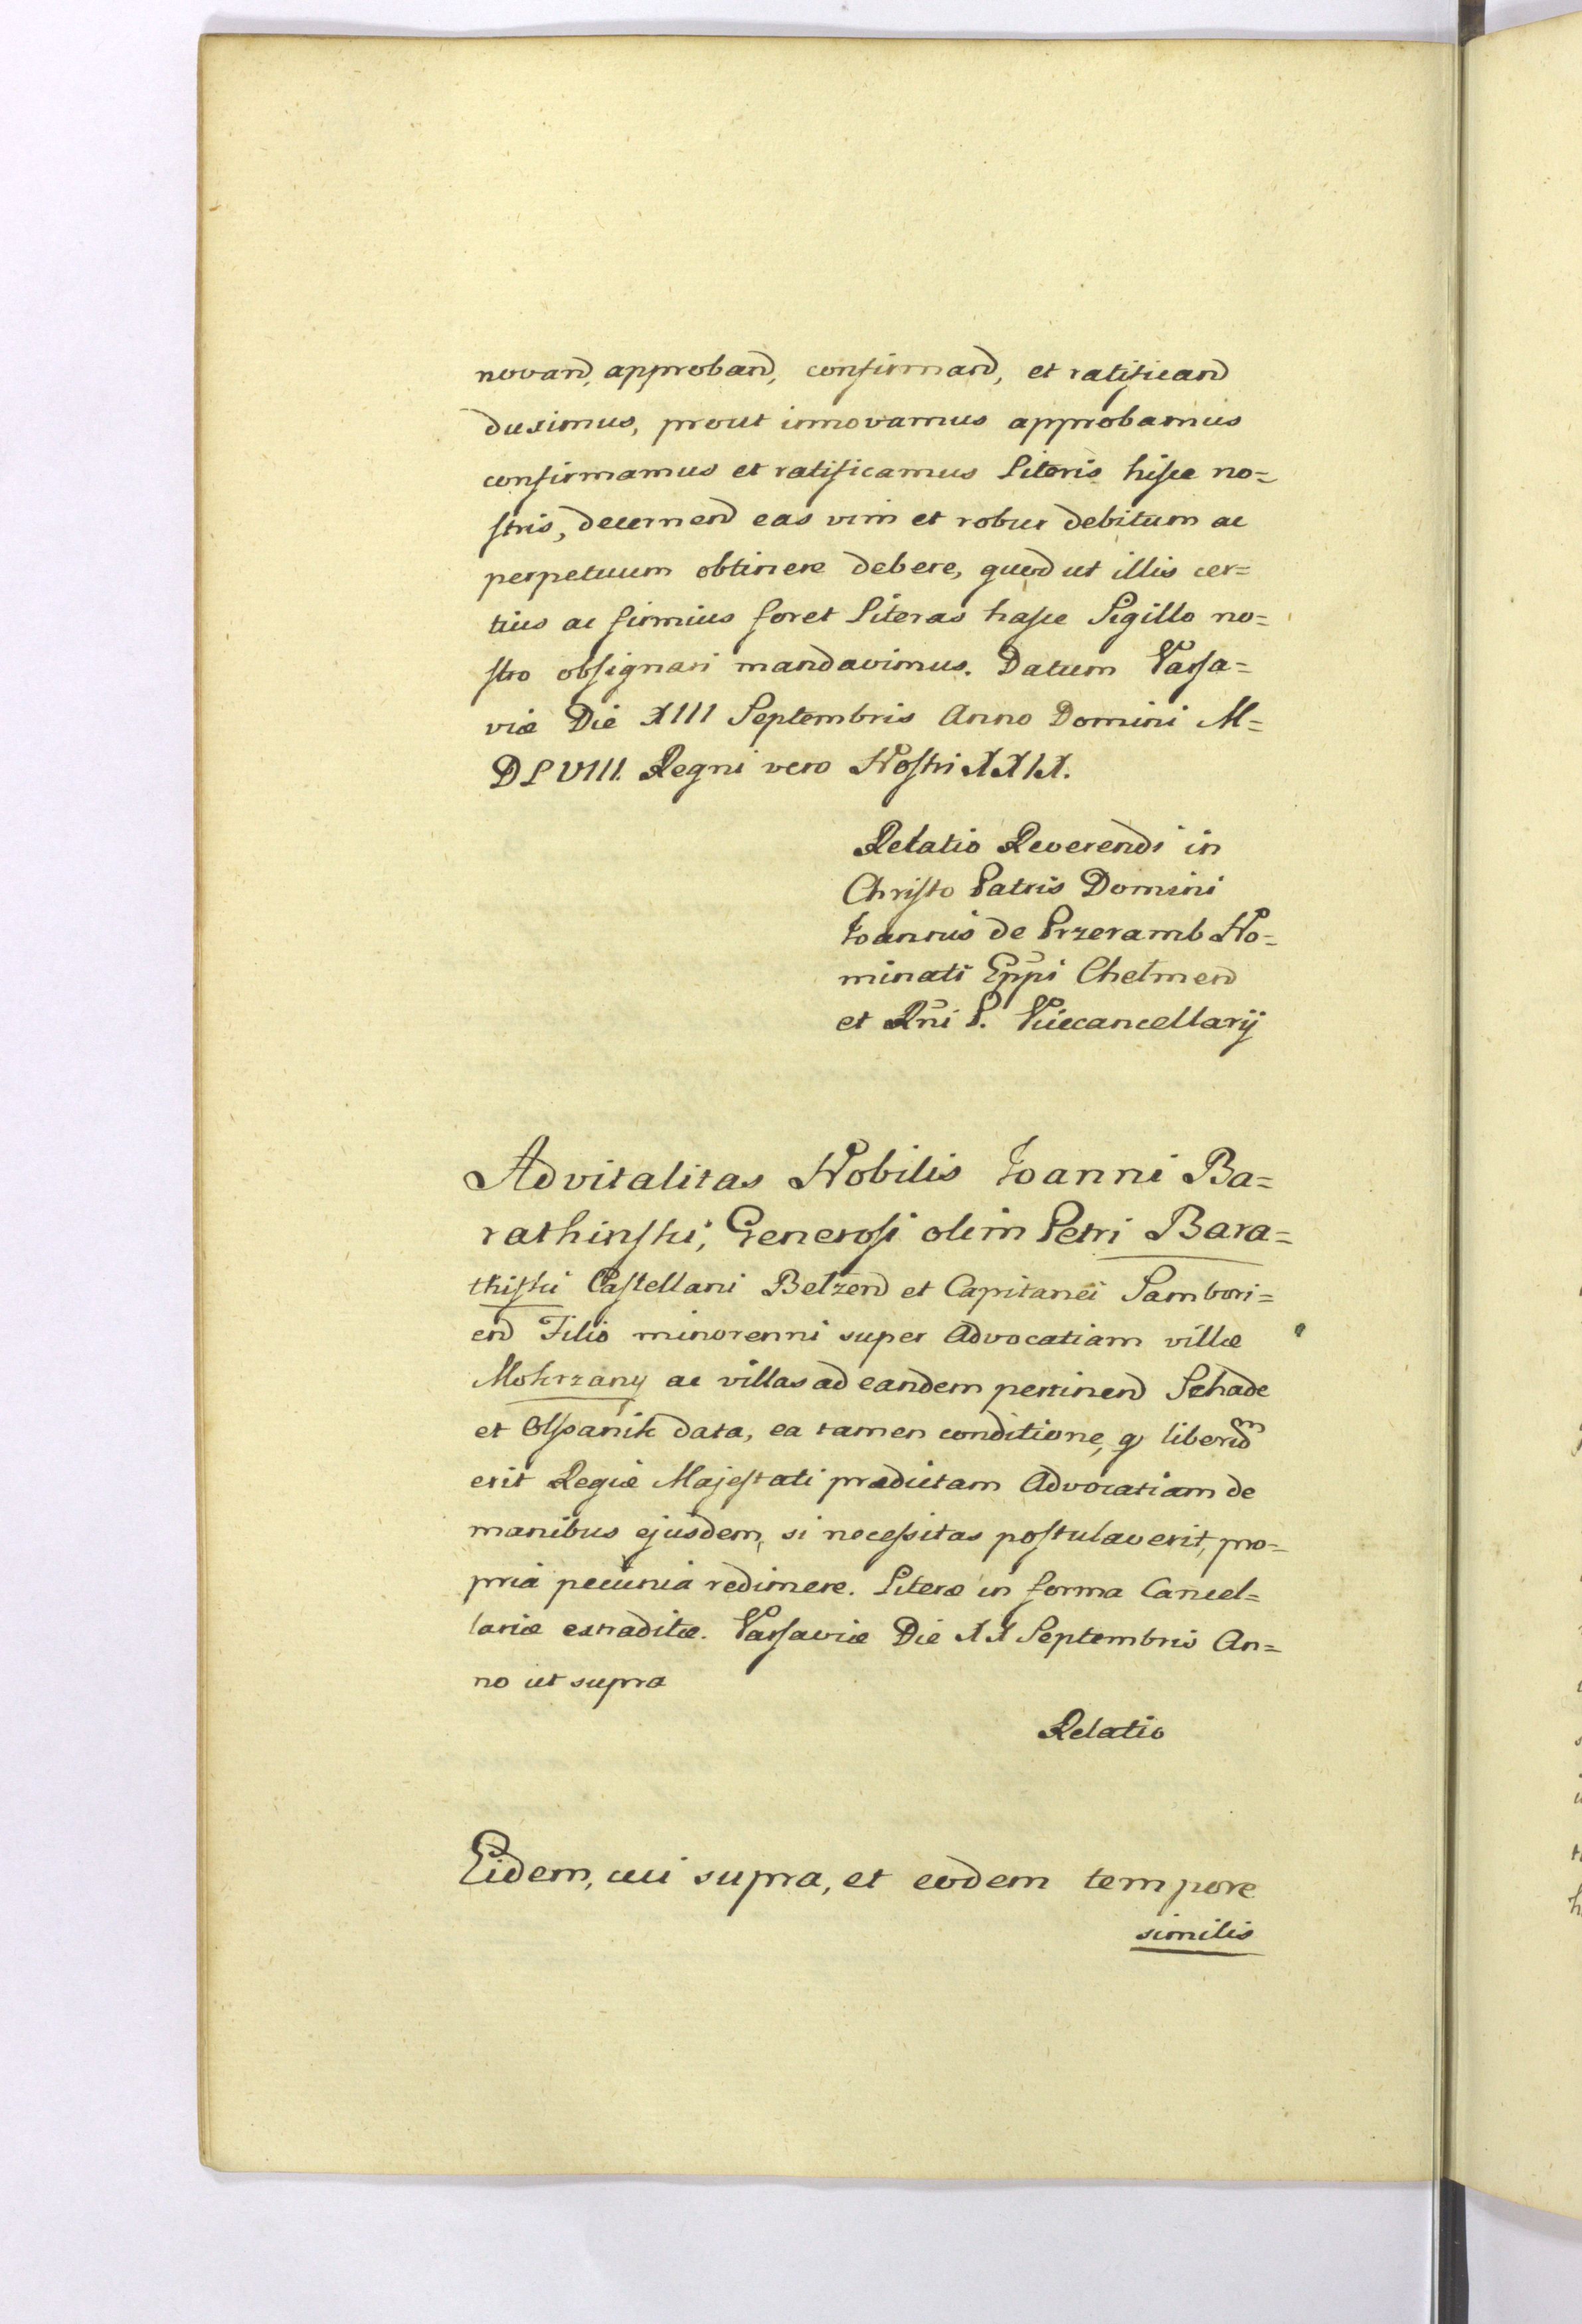 novand, approband, confirmand, et ratificand
duximus, prout innovamus approbamus
confirmamus et ratificamus Literis hisce no=
stris, decernend eas vim et robur debitum ac
perpetuum obtinere debere, quod ut illis cer=
tius ac firmius foret Literas hasce Sigillo no=
stro obsignari mandavimus. Datum Varsa=
viæ Die XIII Septembris Anno Domini M=
DLVIII. Regni vero Nostri XXIX.
Relatio Reverendi in
Christo Patris Domini
Joannis de Przeramb No=
minati Eppi Chelmen
et Rni P. Vicecancellarij
Advitalitas Nobilis Joanni Ba=
rathinski, Generosi olim Petri Bara=
thiski Castellani Belzen et Capitanei Sambori=
en Filio minorenni super Advocatiam villæ
Mokrzany ac villas ad eandem pertinen Schade
et Olspanik data, ea tamen conditione, q liberum
erit Regiæ Majestati prædictam Advocatiam de
manibus ejusdem, si necessitas postulaverit, pro=
pria pecunia redimere. Literæ in forma Cancel=
lariæ extraditæ. Varsaviæ Die XX Septembris An=
no ut supra
Relatio
Eidem, cui supra, et eodem tempore
similis